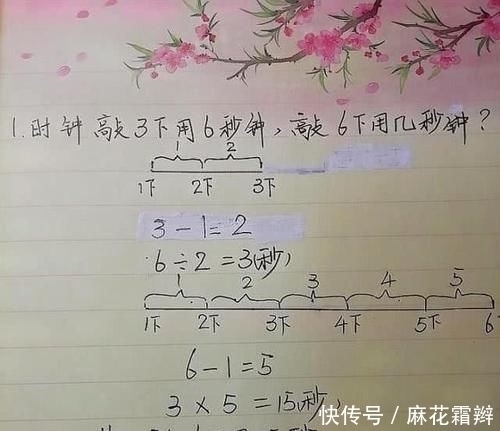 1.时钟敲3下用6秒钟,敲6下用几秒钟?
1 2
1下 2下 3下
3-1=2
6÷2=3(秒)
1 2 3 4 5
1下 2下 3下 4下 5下 6
6-1=5
3×5=15(秒)
快传号/麻花霜辫